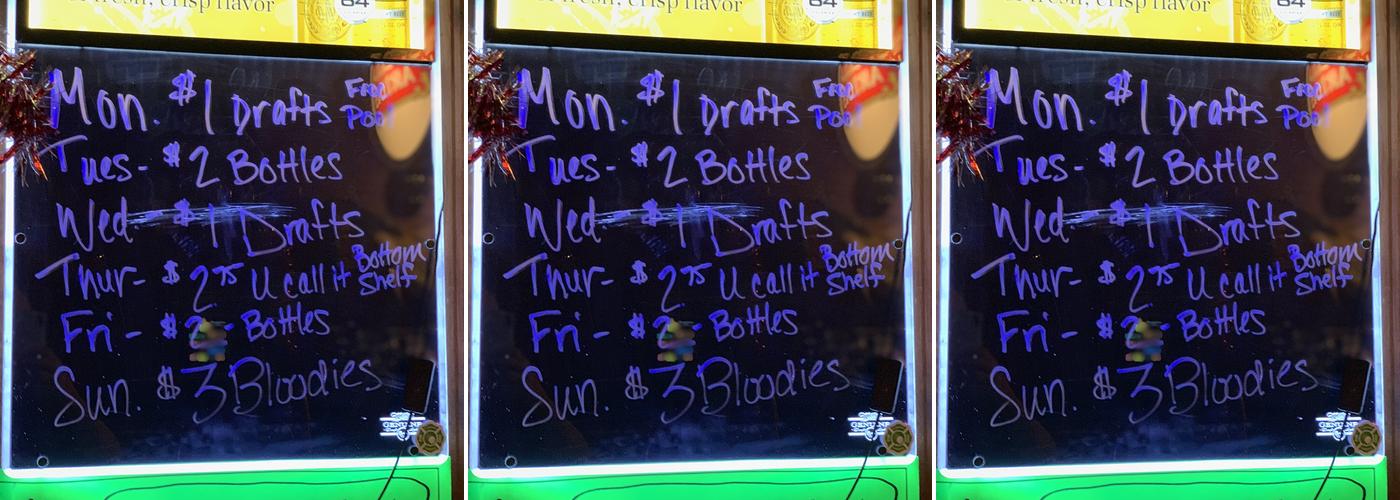 fresh, crisp flavor
64
Mon. $1 Drafts Free Pool
Tues- $2 Bottles
Wed- $1 Drafts
Thur- $2.75 U call it Bottom Shelf
Fri- $2- Bottles
Sun. $3 Bloodies
fresh, crisp flavor
64
Mon. $1 Drafts Free Pool
Tues- $2 Bottles
Wed- $1 Drafts
Thur- $2.75 U call it Bottom Shelf
Fri- $2- Bottles
Sun. $3 Bloodies
fresh, crisp flavor
64
Mon. $1 Drafts Free Pool
Tues- $2 Bottles
Wed- $1 Drafts
Thur- $2.75 U call it Bottom Shelf
Fri- $2- Bottles
Sun. $3 Bloodies